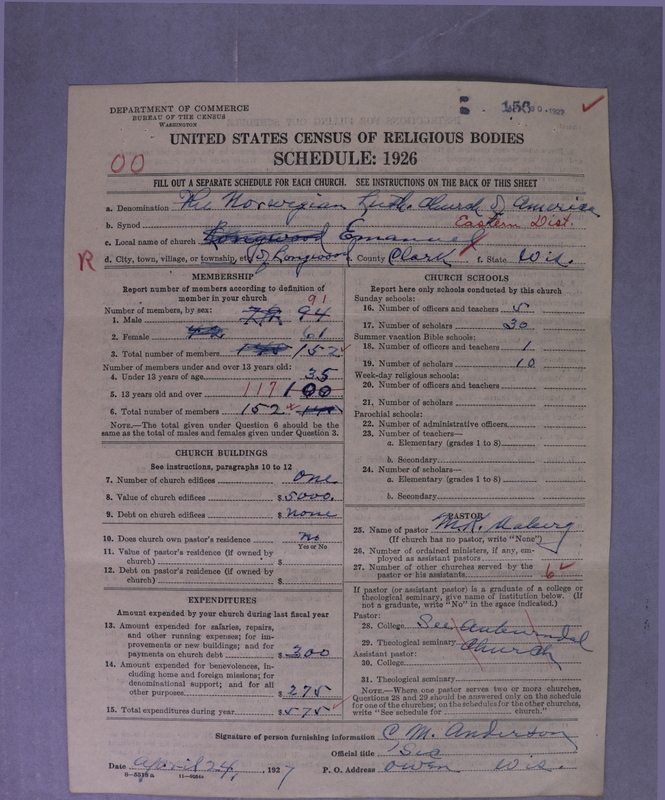 DEPARTMENT OF COMMERCE
BUREAU OF THE CENSUS
WASHINGTON
UNITED STATES CENSUS OF RELIGIOUS BODIES
SCHEDULE: 1926
00
FILL OUT A SEPARATE SCHEDULE FOR EACH CHURCH. SEE INSTRUCTIONS ON THE BACK OF THIS SHEET
a. Denomination The Norwegian Luth. Church of America
b. Synod Eastern Dist.
c. Local name of church Longwood Emanuel
R d. City, town, village, or township, etc. of Longwood e. County Clark f. State Wis.
MEMBERSHIP
Report number of members according to definition of
member in your church
Number of members, by sex: 91
1. Male 94
2. Female 61
3. Total number of members 152
Number of members under and over 13 years old:
4. Under 13 years of age 35
5. 13 years old and over 117 100
6. Total number of members 152
NOTE.—The total given under Question 6 should be the
same as the total of males and females given under Question 3.
CHURCH BUILDINGS
See instructions, paragraphs 10 to 12
7. Number of church edifices one
8. Value of church edifices $5000.
9. Debt on church edifices $none
10. Does church own pastor's residence no
Yes or No
11. Value of pastor's residence (if owned by
church) $
12. Debt on pastor's residence (if owned by
church) $
EXPENDITURES
Amount expended by your church during last fiscal year
13. Amount expended for salaries, repairs,
and other running expenses; for im-
provements or new buildings; and for
payments on church debt $300
14. Amount expended for benevolences, in-
cluding home and foreign missions; for
denominational support; and for all
other purposes $275
15. Total expenditures during year $575
CHURCH SCHOOLS
Report here only schools conducted by this church
Sunday schools:
16. Number of officers and teachers 5
17. Number of scholars 30
Summer vacation Bible schools:
18. Number of officers and teachers 1
19. Number of scholars 10
Week-day religious schools:
20. Number of officers and teachers
21. Number of scholars
Parochial schools:
22. Number of administrative officers
23. Number of teachers—
a. Elementary (grades 1 to 8)
b. Secondary
24. Number of scholars—
a. Elementary (grades 1 to 8)
b. Secondary
PASTOR
25. Name of pastor M.K.
(If church has no pastor, write "None")
26. Number of ordained ministers, if any, em-
ployed as assistant pastors
27. Number of other churches served by the
pastor or his assistants 6
If pastor (or assistant pastor) is a graduate of a college or
theological seminary, give name of institution below. (If
not a graduate, write "No" in the space indicated.)
Pastor:
28. College See
29. Theological seminary Church
Assistant pastor:
30. College
31. Theological seminary
NOTE.—Where one pastor serves two or more churches,
Questions 28 and 29 should be answered only on the schedule
for one of the churches; on the schedules for the other churches,
write "See schedule for church."
Signature of person furnishing information C M. Anderson
Official title Sec
Date April 24, 1927 P. O. Address Owen Wis.